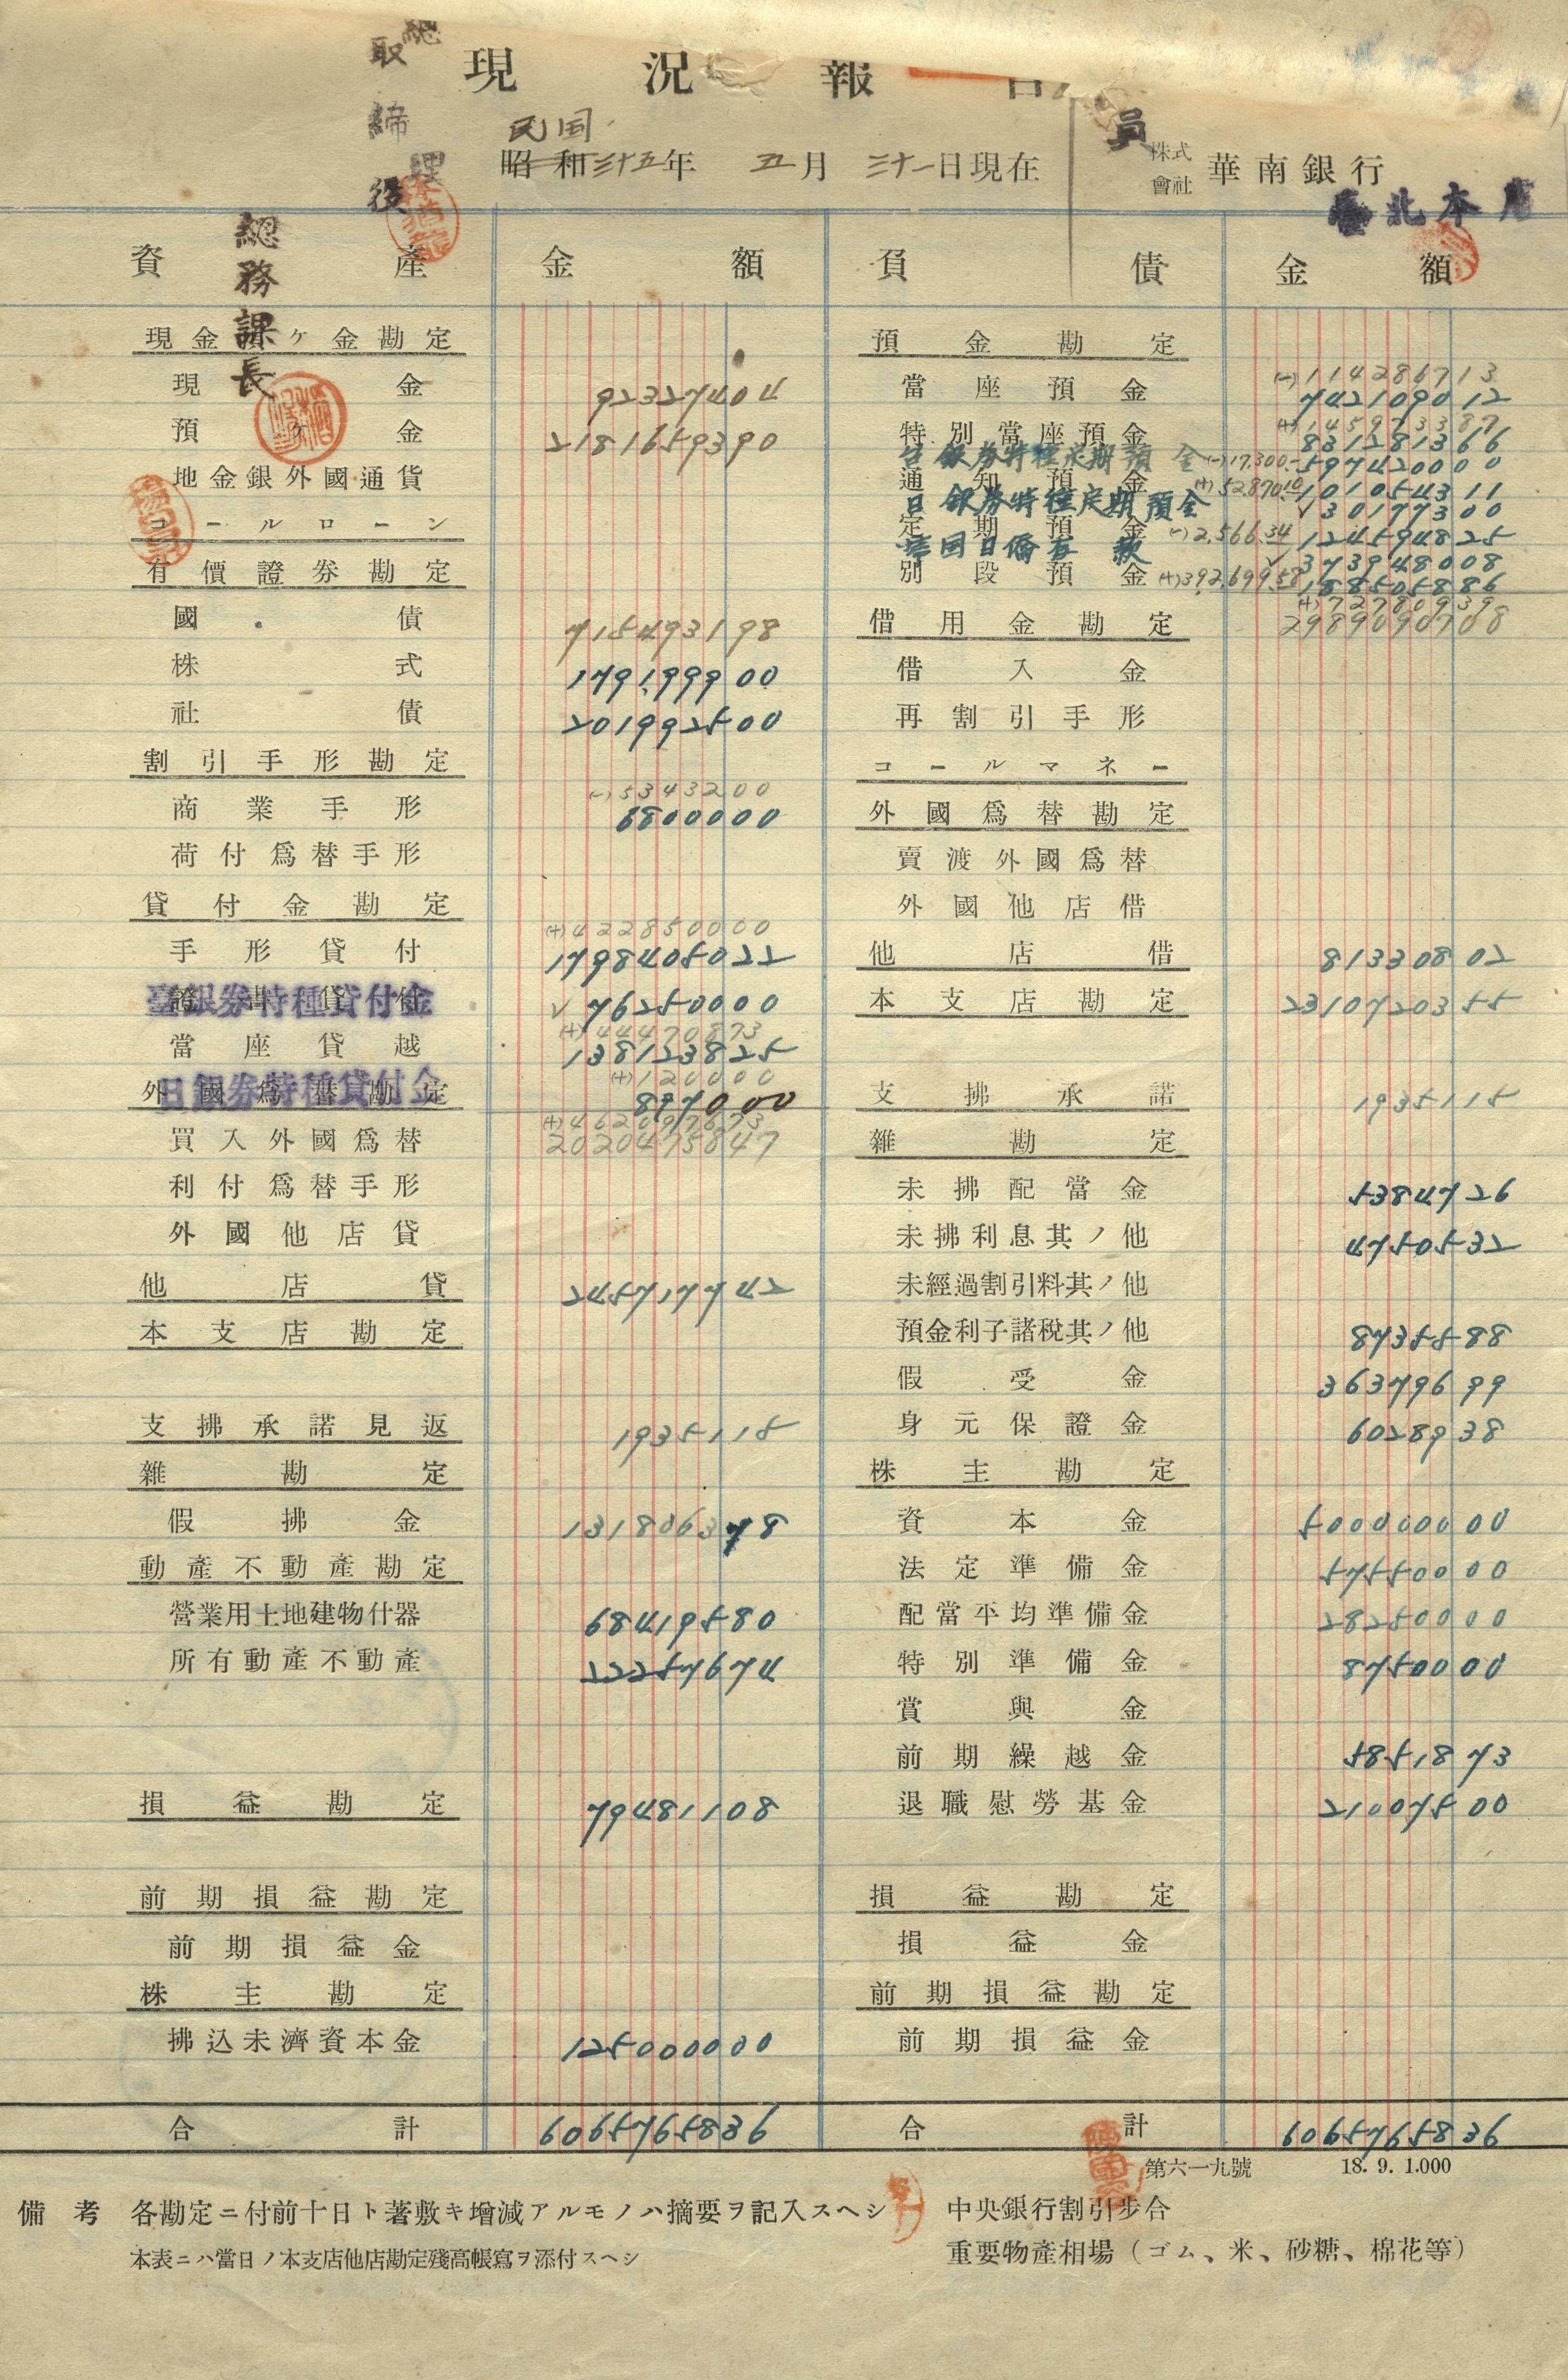 現況報告
民国
昭和三十五年 五月 三十一日現在
株式會社 華南銀行
臺北本店
取締役
總務課長
資產 金額 負債 金額
現金預ケ金勘定
現金 92327404
預ケ金 2181659390
地金銀外國通貨
コールローン
有價證券勘定
國債 715493198
株式 179199900
社債 201992500
割引手形勘定
(-)5343200
商業手形 6800000
荷付爲替手形
貸付金勘定
(+)422850000
手形貸付 1798405022
證書貸付
臺銀券特種貸付金 √76250000
(+)44470873
當座貸越 138123825
(+)120000
外國爲替勘定
日銀券特種貸付金 897000
(+)462097673
買入外國爲替 2020475847
利付爲替手形
外國他店貸
他店貸 245717742
本支店勘定
支拂承諾見返 1935115
雜勘定
假拂金 131806378
動產不動產勘定
營業用土地建物什器 68419580
所有動產不動產 22257674
損益勘定 79481108
前期損益勘定
前期損益金
株主勘定
拂込未濟資本金 125000000
合計 6065765836
預金勘定
(-)114286713
當座預金 742109012
(+)145973387
特別當座預金 831281366
台銀券特種定期預金 (-)17,300.- 597420000
通知預金 (+)52,870.10 101054311
日銀券特種定期預金 √30177300
定期預金 (-)2,566.34 124594825
華囯日僑存款 √373948008
別段預金 (+)392,699.58 188505886
(+)72780939
借用金勘定 2989090708
借入金
再割引手形
コールマネー
外國爲替勘定
賣渡外國爲替
外國他店借
他店借 81330802
本支店勘定 2310720355
支拂承諾 1935115
雜勘定
未拂配當金 5384726
未拂利息其ノ他 4750532
未經過割引料其ノ他
預金利子諸稅其ノ他 8735588
假受金 36379699
身元保證金 6028938
株主勘定
資本金 500000000
法定準備金 57550000
配當平均準備金 28250000
特別準備金 8750000
賞與金
前期繰越金 5851873
退職慰勞基金 21007500
損益勘定
損益金
前期損益勘定
前期損益金
合計 6065765836
第六一九號 18. 9. 1.000
備考 各勘定ニ付前十日ト著敷キ增減アルモノハ摘要ヲ記入スヘシ
本表ニハ當日ノ本支店他店勘定殘高帳寫ヲ添付スヘシ
中央銀行割引步合
重要物產相場（ゴム、米、砂糖、棉花等）